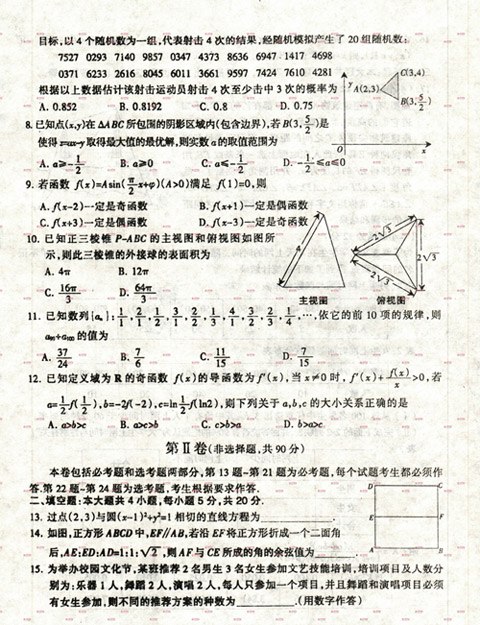 目标,以4个随机数为一组,代表射击4次的结果,经随机模拟产生了20组随机数:
7527 0293 7140 9857 0347 4373 8636 6947 1417 4698
0371 6233 2616 8045 6011 3661 9597 7424 7610 4281
根据以上数据估计该射击运动员射击4次至少击中3次的概率为
A. 0.852 B. 0.8192 C. 0.8 D. 0.75
y A(2,3) C(3,4) B(3,5/2) O x
8.已知点(x,y)在△ABC所包围的阴影区域内(包含边界),若B(3,5/2)是
使得z=ax-y取得最大值的最优解,则实数a的取值范围为
A. a≥-1/2 B. a≥0 C. a≤-1/2 D. -1/2≤a≤0
9. 若函数 f(x)=Asin(π/2x+φ)(A>0)满足 f(1)=0,则
A. f(x-2)一定是奇函数 B. f(x+1)一定是偶函数
C. f(x+3)一定是偶函数 D. f(x-3)一定是奇函数
10. 已知正三棱锥P-ABC的主视图和俯视图如图所
示,则此三棱锥的外接球的表面积为
A. 4π B. 12π
C. 16π/3 D. 64π/3
4 主视图 2√3 2√3 2√3 俯视图
11. 已知数列{aₙ}:1/1,2/1,1/2,3/1,2/2,1/3,4/1,3/2,2/3,1/4,…,依它的前10项的规律,则
a₉₉+a₁₀₀的值为
A. 37/24 B. 7/6 C. 11/15 D. 7/15
12. 已知定义域为R的奇函数 f(x)的导函数为f′(x),当x≠0时,f′(x)+f(x)/x>0,若
a=1/2f(1/2),b=-2f(-2),c=ln1/2f(ln2),则下列关于a,b,c的大小关系正确的是
A. a>b>c B. a>c>b C. c>b>a D. b>a>c
第Ⅱ卷(非选择题,共90分)
本卷包括必考题和选考题两部分,第13题~第21题为必考题,每个试题考生都必须作
答.第22题~第24题为选考题,考生根据要求作答.
二、填空题:本大题共4小题,每小题5分,共20分.
13. 过点(2,3)与圆(x-1)²+y²=1相切的直线方程为
14. 如图,正方形ABCD中,EF//AB,若沿EF将正方形折成一个二面角
后,AE:ED:AD=1:1:√2,则AF与CE所成的角的余弦值为
D C E F A B
15. 为举办校园文化节,某班推荐2名男生3名女生参加文艺技能培训,培训项目及人数分
别为:乐器1人,舞蹈2人,演唱2人,每人只参加一个项目,并且舞蹈和演唱项目必须
有女生参加,则不同的推荐方案的种数为 .(用数字作答)